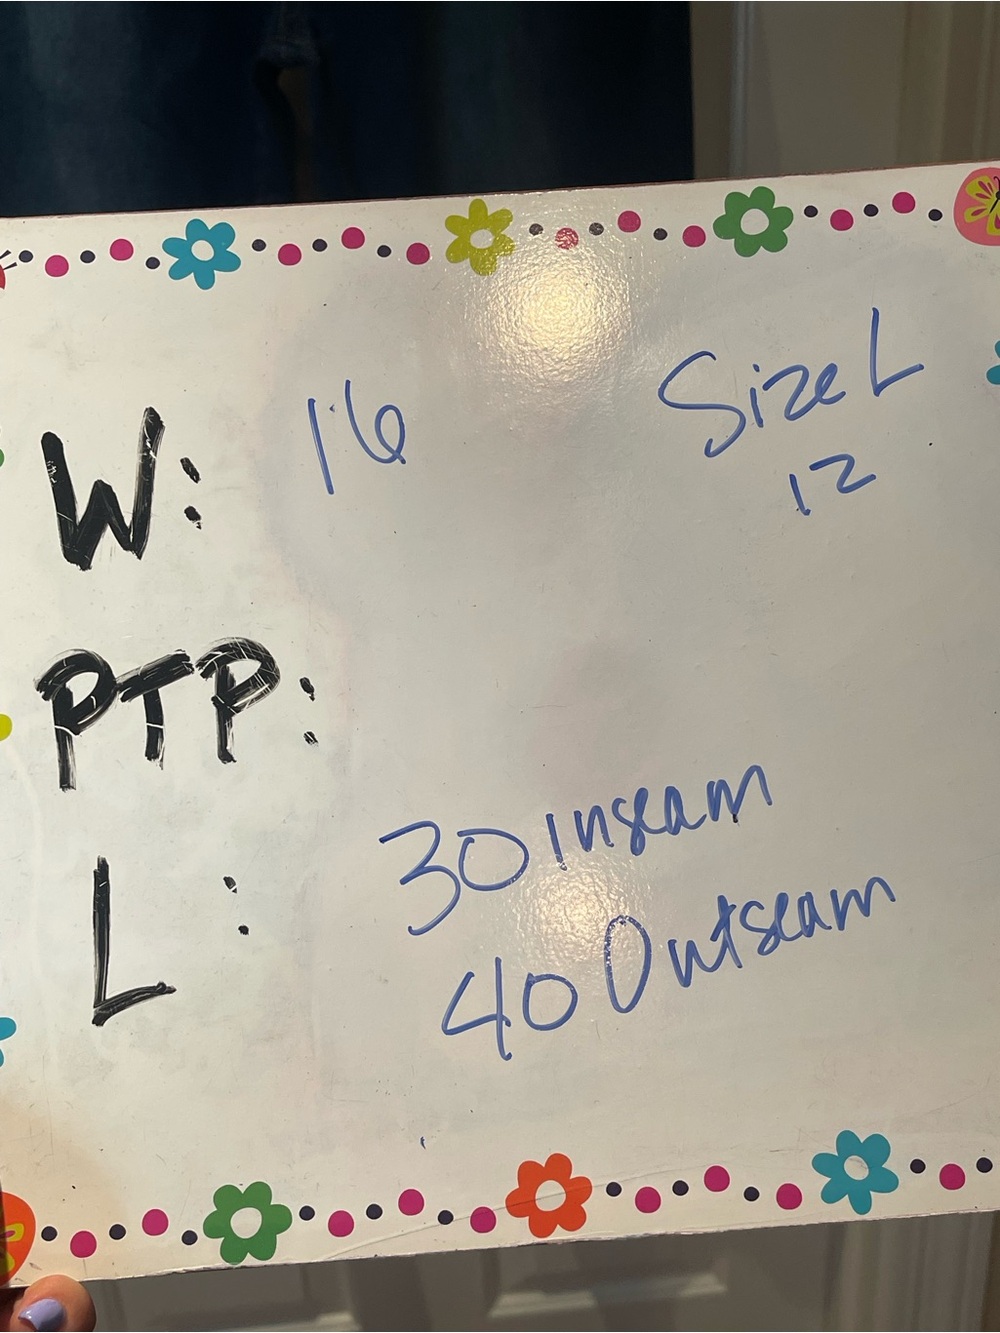 Size L
W: 16
12
PTP:
30 inseam
L:
40 Outseam